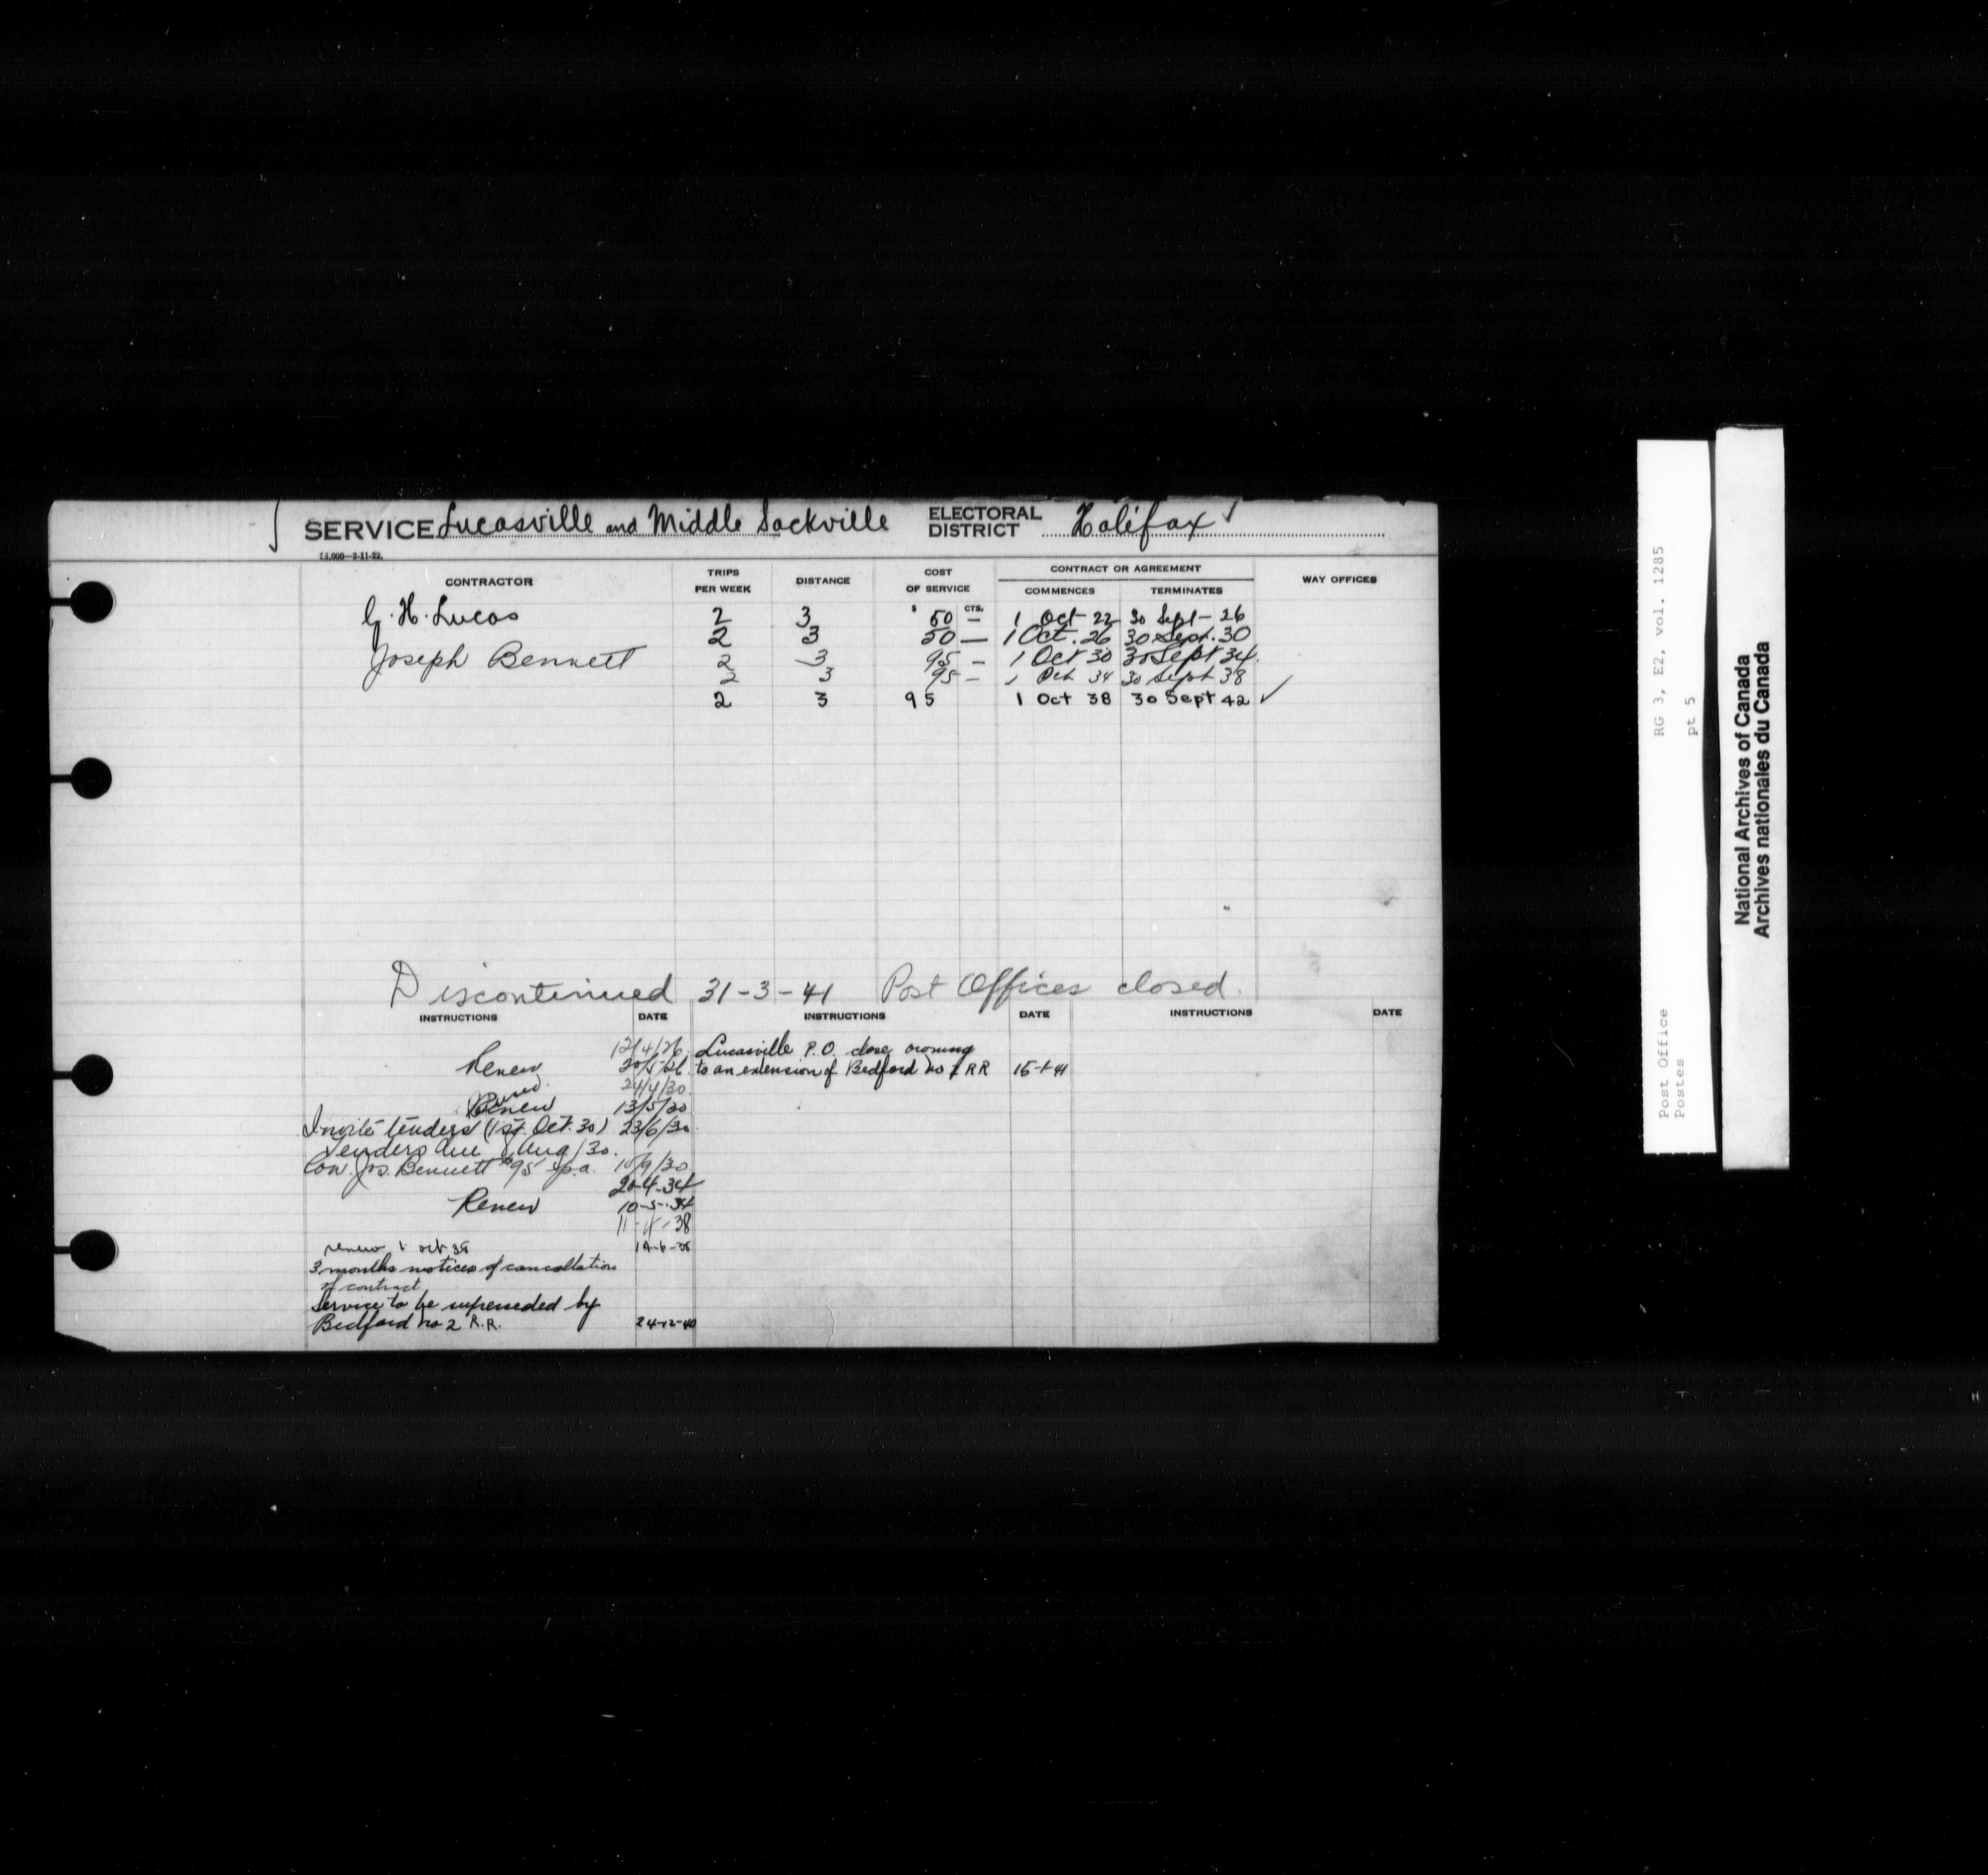 SERVICE Lucasville and Middle Sackville ELECTORAL DISTRICT Halifax
15,000—2-11-22.
CONTRACTOR TRIPS PER WEEK DISTANCE COST OF SERVICE CONTRACT OR AGREEMENT COMMENCES TERMINATES WAY OFFICES
$ CTS.
G. H. Lucas 2 3 50 — 1 Oct 22 30 Sept - 26
2 3 50 — 1 Oct. 26 30 Sept. 30
Joseph Bennett 2 3 95 — 1 Oct 30 30 Sept 34.
2 3 95 — 1 Oct 34 30 Sept 38
2 3 95 1 Oct 38 30 Sept 42 ✓
Discontinued 31-3-41 Post Offices closed.
INSTRUCTIONS DATE INSTRUCTIONS DATE INSTRUCTIONS DATE
12/4/26 Lucasville P.O. close owning
Renew 20/5/26 to an extension of Bedford no RR 15-1-41
24/4/30
Renew 13/5/30
Invite tenders (1st. Oct. 30) 23/6/30
Tenders due Aug/30.
Con. Jos. Bennett $95 p.a. /9/30
20-4-34
Renew 10-5-34
11-4-38
renew 1 oct 38 14-6-38
3 months notices of cancellation
of contract
Service to be superseded by
Bedford no 2 R.R. 24-12-40
RG 3, E2, vol. 1285
pt 5
Post Office
Postes
National Archives of Canada
Archives nationales du Canada